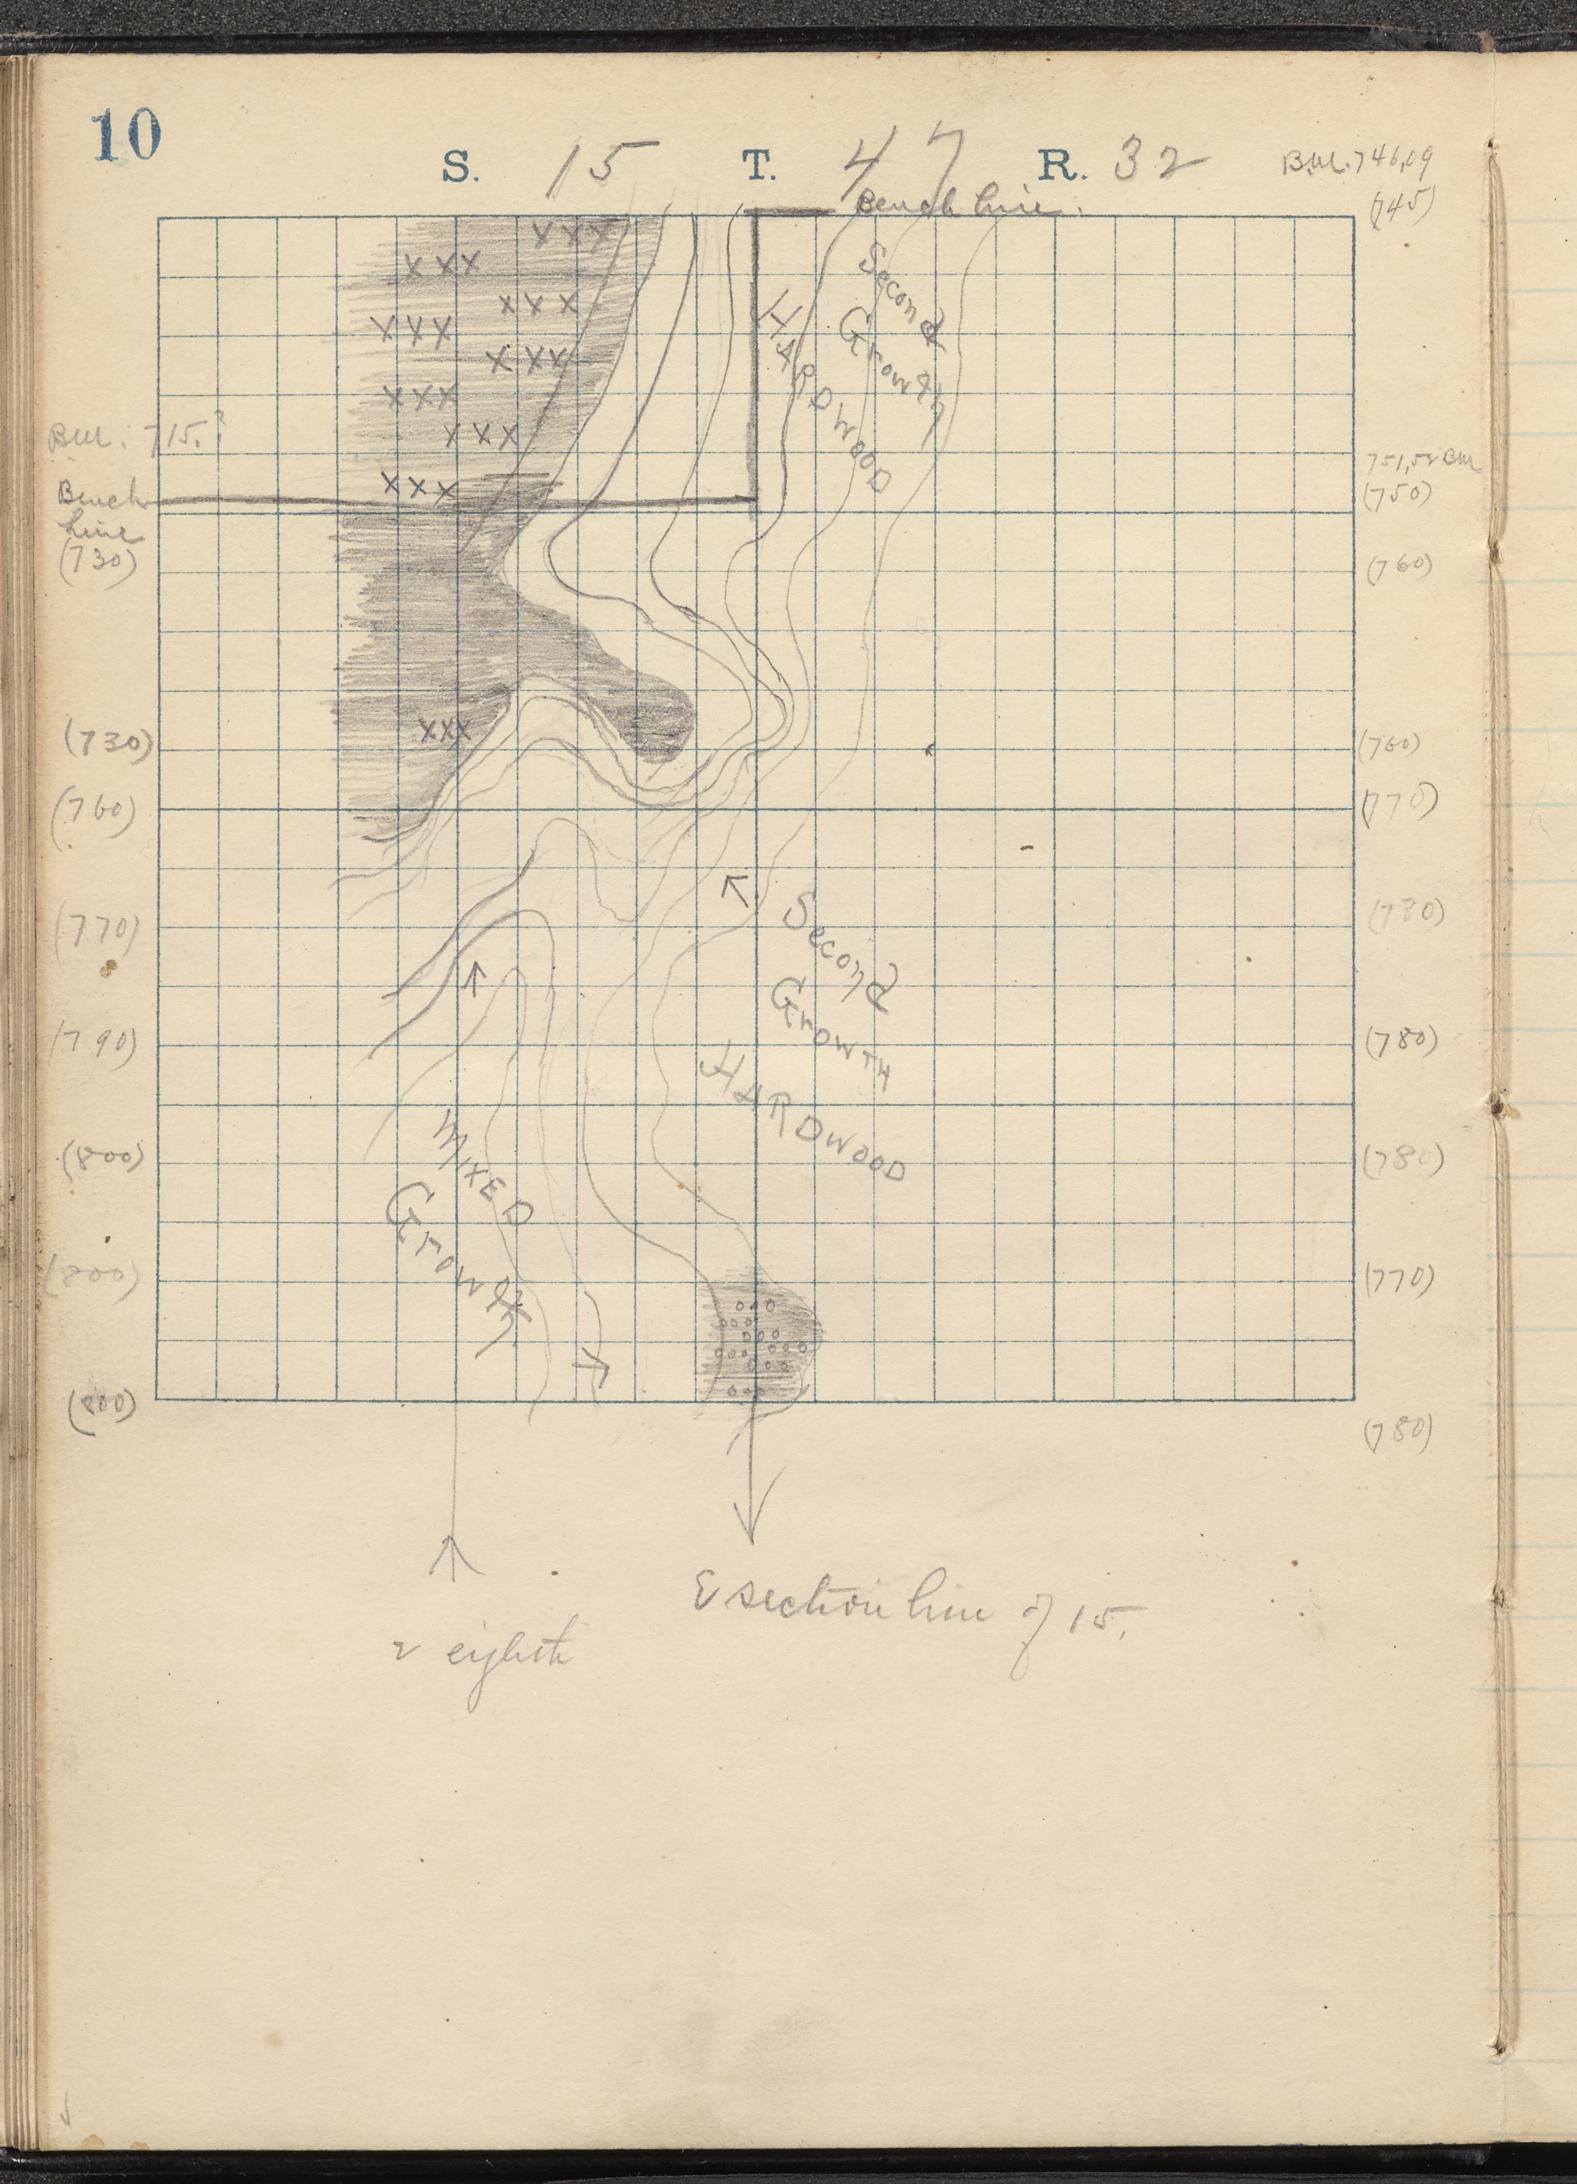 10
S. 15 T. 47 R. 32
B.M. 746,09
(745)
Bench line.
Second
Growth
HARDWOOD
XXX
XXX
XXX
XXX
XXX
XXX
XXX
XXX
B.M. 715.?
Bench
line
(730)
751,52 BM
(750)
(760)
XXX
(730)
(760)
(760)
(770)
(770)
(780)
Second
Growth
HARDWOOD
(790)
(780)
MIXED
Growth
(800)
(780)
(800)
(770)
(800)
(780)
E section line of 15.
2 eighth